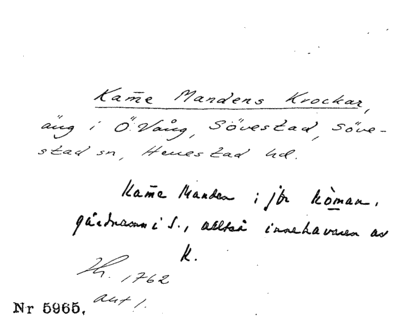 Kam̄e Mandens Krockar,
äng i Ö. Vång, Sövestad, Söve-
stad sn, Herrestad hd.
Kam̄e Manden i jfr kòman,
gårdnamn i S., alltså innehavaren av
K.
Lh. 1762
akt 1.
Nr 5965.